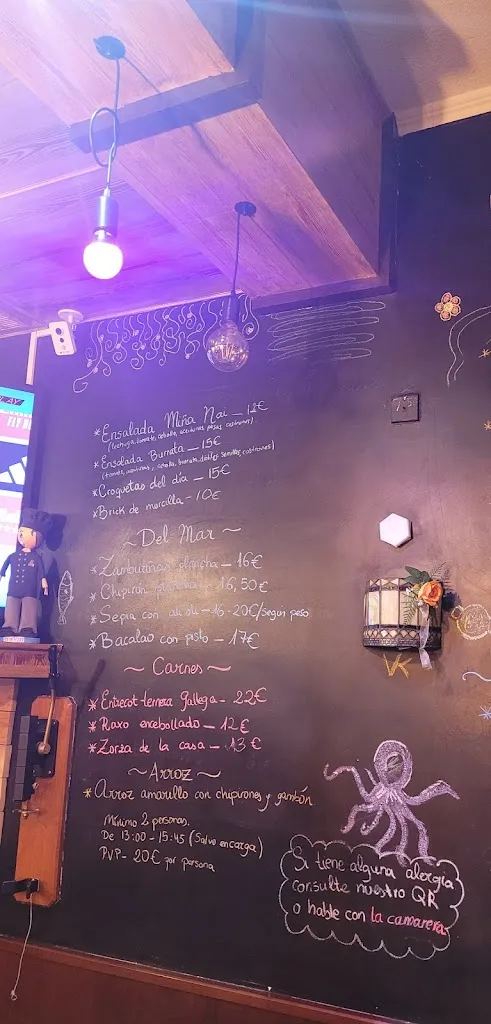 *Ensalada Miña Nai — 12€
*Ensalada Burrata — 15€
*Croquetas del día — 15€
*Brick de morcilla - 10€
~ Del Mar ~
*Zamburiñas plancha - 16€
*Chipirón plancha - 16,50€
*Sepia con ali oli - 16-20€/Segun peso
*Bacalao con pisto - 17€
~ Carnes ~
*Entrecot ternera Gallega - 22€
*Raxo encebollado - 12€
*Zorza de la casa - 13€
~ Arroz ~
*Arroz amarillo con chipirones y gambón
Mínimo 2 personas.
De 13:00 - 15:45 (Salvo encarga)
PVP - 20€ por persona
Si tiene alguna alergia
consulte nuestro QR
o hable con la camarera